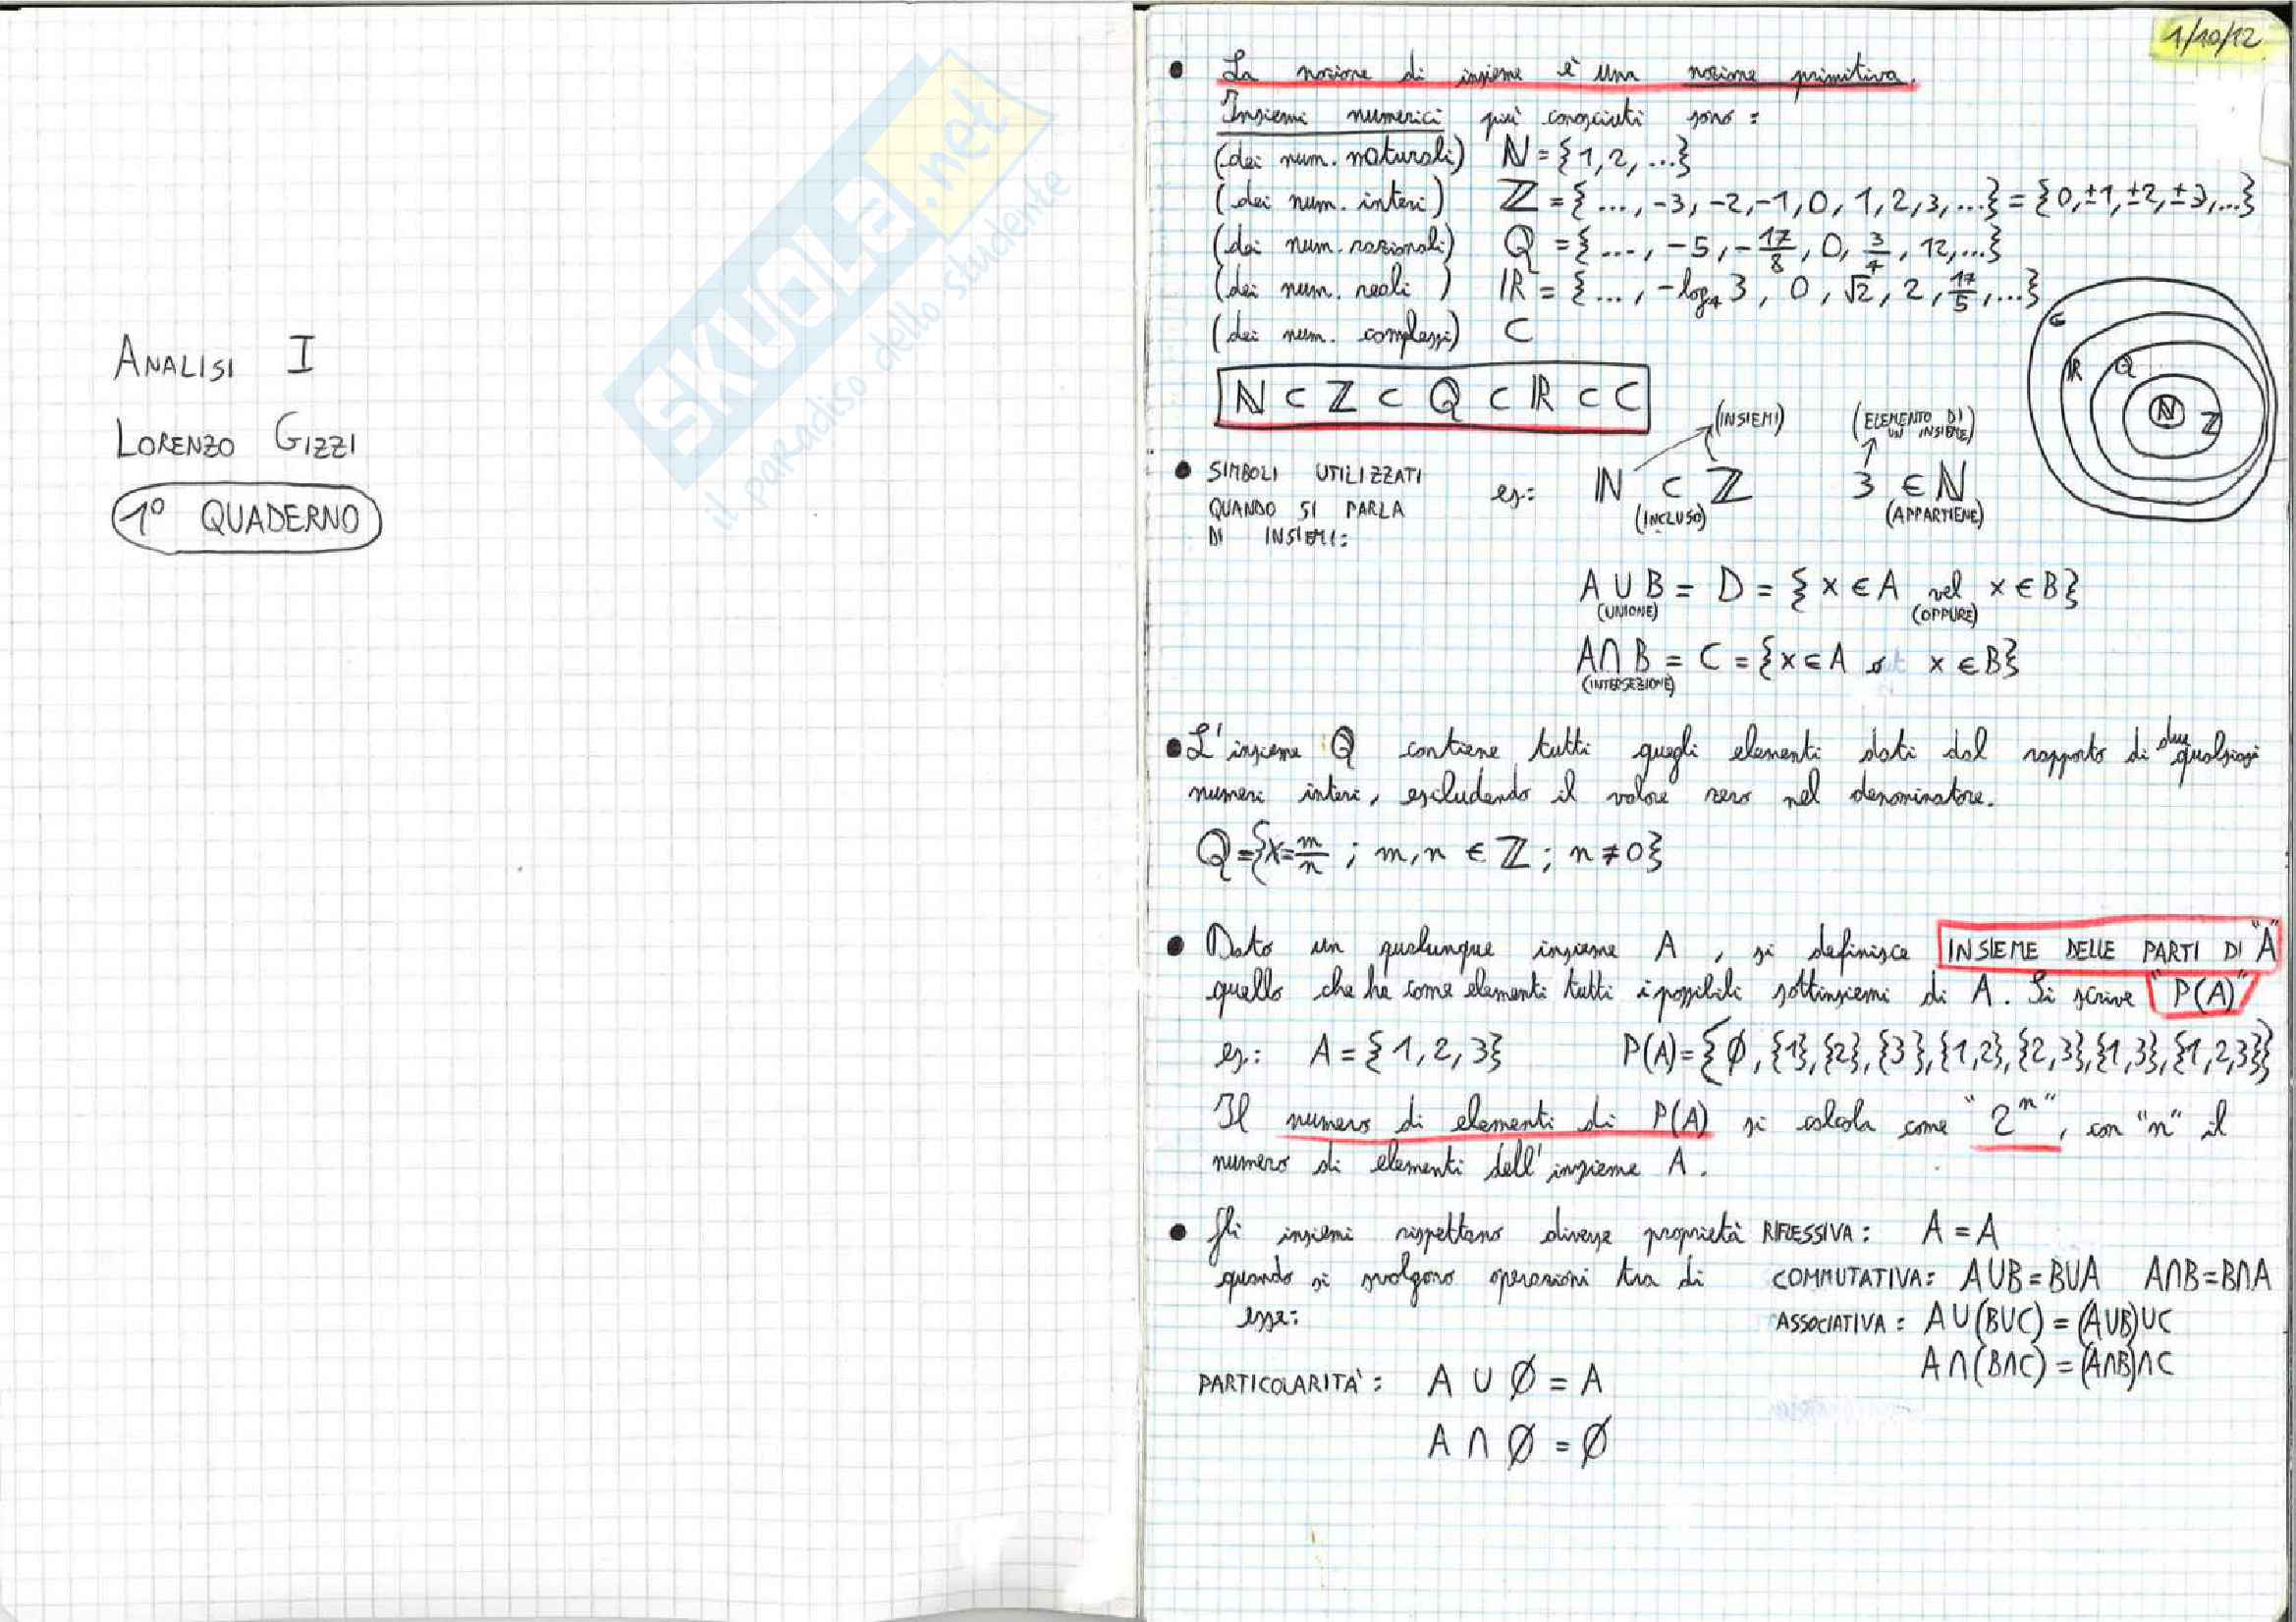 ANALISI I
LORENZO GIZZI
1° QUADERNO
SKUOLA.net
il paradiso dello studente
1/10/12
• La nozione di insieme è una nozione primitiva.
Insiemi numerici più conosciuti sono:
(dei num. naturali) ℕ = {1, 2, ...}
(dei num. interi) ℤ = {..., -3, -2, -1, 0, 1, 2, 3, ...} = {0, ±1, ±2, ±3, ...}
(dei num. razionali) ℚ = {..., -5, -17/8, 0, 3/4, 12, ...}
(dei num. reali) ℝ = {..., -log₄ 3, 0, √2, 2, 17/5, ...}
(dei num. complessi) C
ℕ ⊂ ℤ ⊂ ℚ ⊂ ℝ ⊂ C
C ℝ Q ℕ ℤ
(INSIEMI) (ELEMENTO DI UN INSIEME)
• SIMBOLI UTILIZZATI
QUANDO SI PARLA
DI INSIEMI:
es.: ℕ ⊂ ℤ 3 ∈ ℕ
(INCLUSO) (APPARTIENE)
A ∪ B = D = {x ∈ A vel x ∈ B}
(UNIONE) (OPPURE)
A ∩ B = C = {x ∈ A x ∈ B}
(INTERSEZIONE)
• L'insieme ℚ contiene tutti quegli elementi dati dal rapporto di due qualsiasi
numeri interi, escludendo il valore zero nel denominatore.
ℚ = {x = m/n ; m, n ∈ ℤ ; n ≠ 0}
• Dato un qualunque insieme A, si definisce INSIEME DELLE PARTI DI "A"
quello che ha come elementi tutti i possibili sottinsiemi di A. Si scrive "P(A)"
es.: A = {1, 2, 3} P(A) = {∅, {1}, {2}, {3}, {1,2}, {2,3}, {1,3}, {1,2,3}}
Il numero di elementi di P(A) si calcola come "2ⁿ", con "n" il
numero di elementi dell'insieme A.
• Gli insiemi rispettano diverse proprietà
quando si svolgono operazioni tra di
esse:
RIFLESSIVA: A = A
COMMUTATIVA: A∪B = B∪A A∩B = B∩A
ASSOCIATIVA: A∪(B∪C) = (A∪B)∪C
A∩(B∩C) = (A∩B)∩C
PARTICOLARITÀ: A ∪ ∅ = A
A ∩ ∅ = ∅